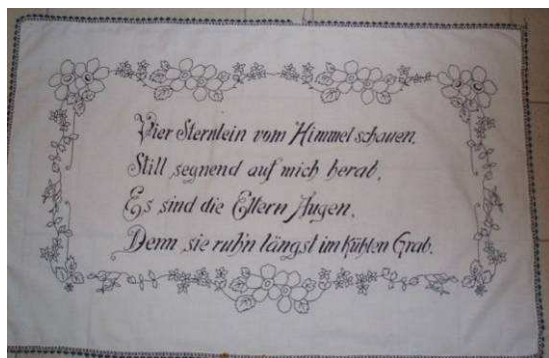 Vier Sternlein vom Himmel schauen,
Still segnend auf mich herab,
Es sind die Eltern Augen,
Denn sie ruh'n längst im kühlen Grab.